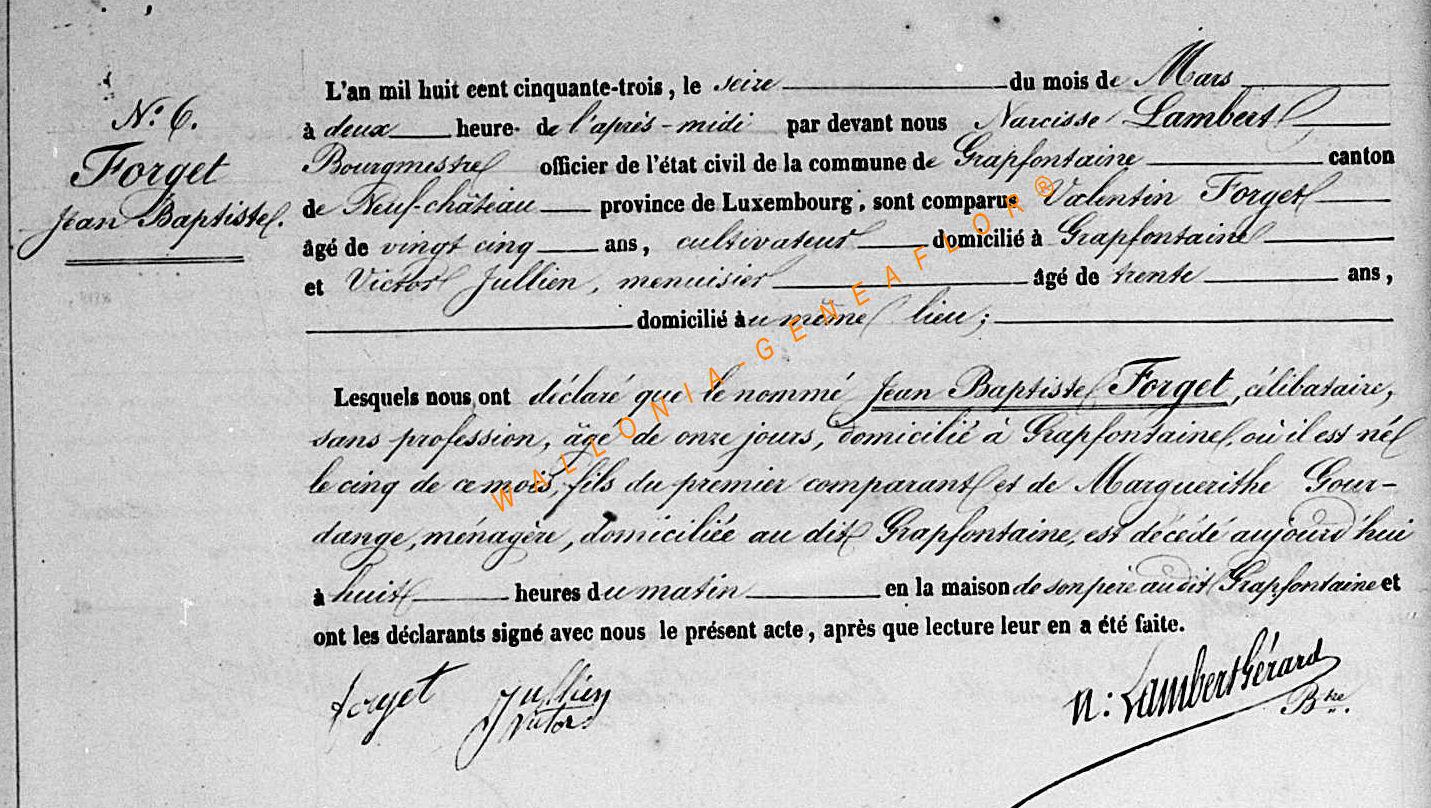 N.° 6.
Forget
Jean Baptiste.
L'an mil huit cent cinquante-trois, le seize du mois de Mars
à deux heure de l'après-midi par devant nous Narcisse Lambert
Bourgmestre officier de l'état civil de la commune de Grapfontaine canton
de Neuf-château province de Luxembourg, sont comparus Valentin Forget
âgé de vingt cinq ans, cultivateur domicilié à Grapfontaine
et Victor Jullien, menuisier âgé de trente ans,
domicilié au même lieu;
Lesquels nous ont déclaré que le nommé Jean Baptiste Forget, célibataire,
sans profession, âgé de onze jours, domicilié à Grapfontaine, où il est né
le cinq de ce mois, fils du premier comparant et de Marguerithe Gour-
dange, ménagère, domiciliée au dit Grapfontaine, est décédé aujourd'hui
à huit heures du matin en la maison de son père au dit Grapfontaine et
ont les déclarants signé avec nous le présent acte, après que lecture leur en a été faite.
forget Jullien Victor n: Lambert Gérard
Btre.
WALLONIA-GENEAFLOR®